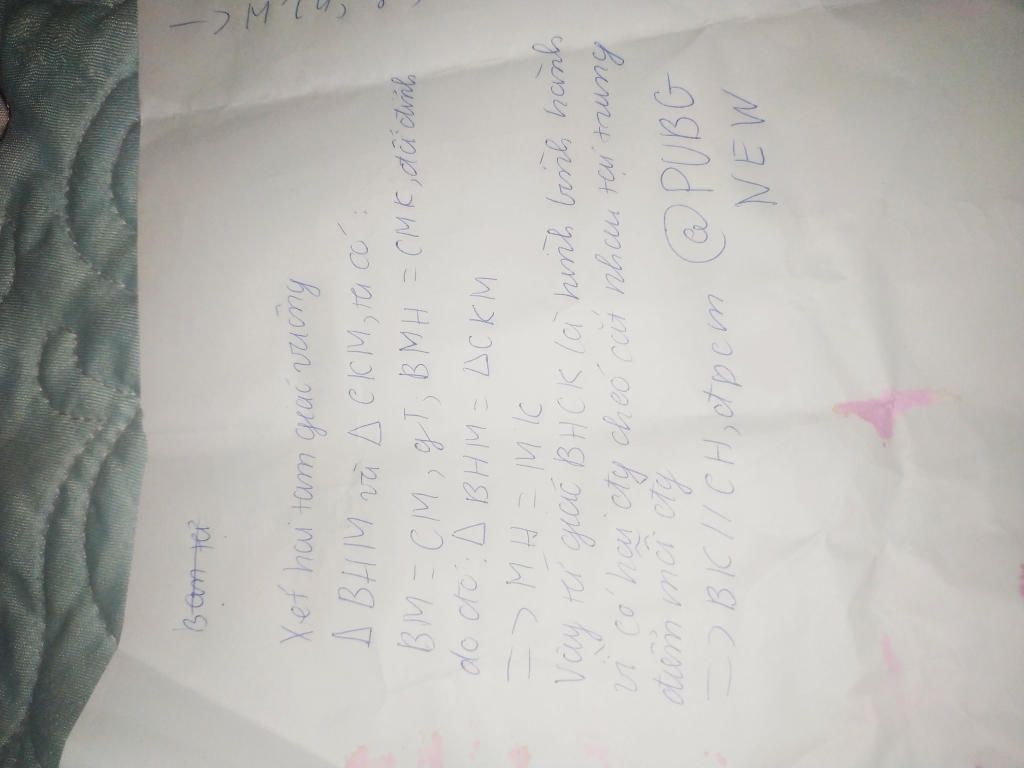 Xét hai tam giác vuông
Δ BHM và Δ CKM, ta có:
BM = CM, gT; BMH = CMK, đối đỉnh
do đó: Δ BHM = Δ CKM
=> MH = MK
Vậy tứ giác BHCK là hình bình hành
vì có hai đty chéo cắt nhau tại trung
điểm mỗi đty
=> BK // CH, đpcm @PUBG
NEW